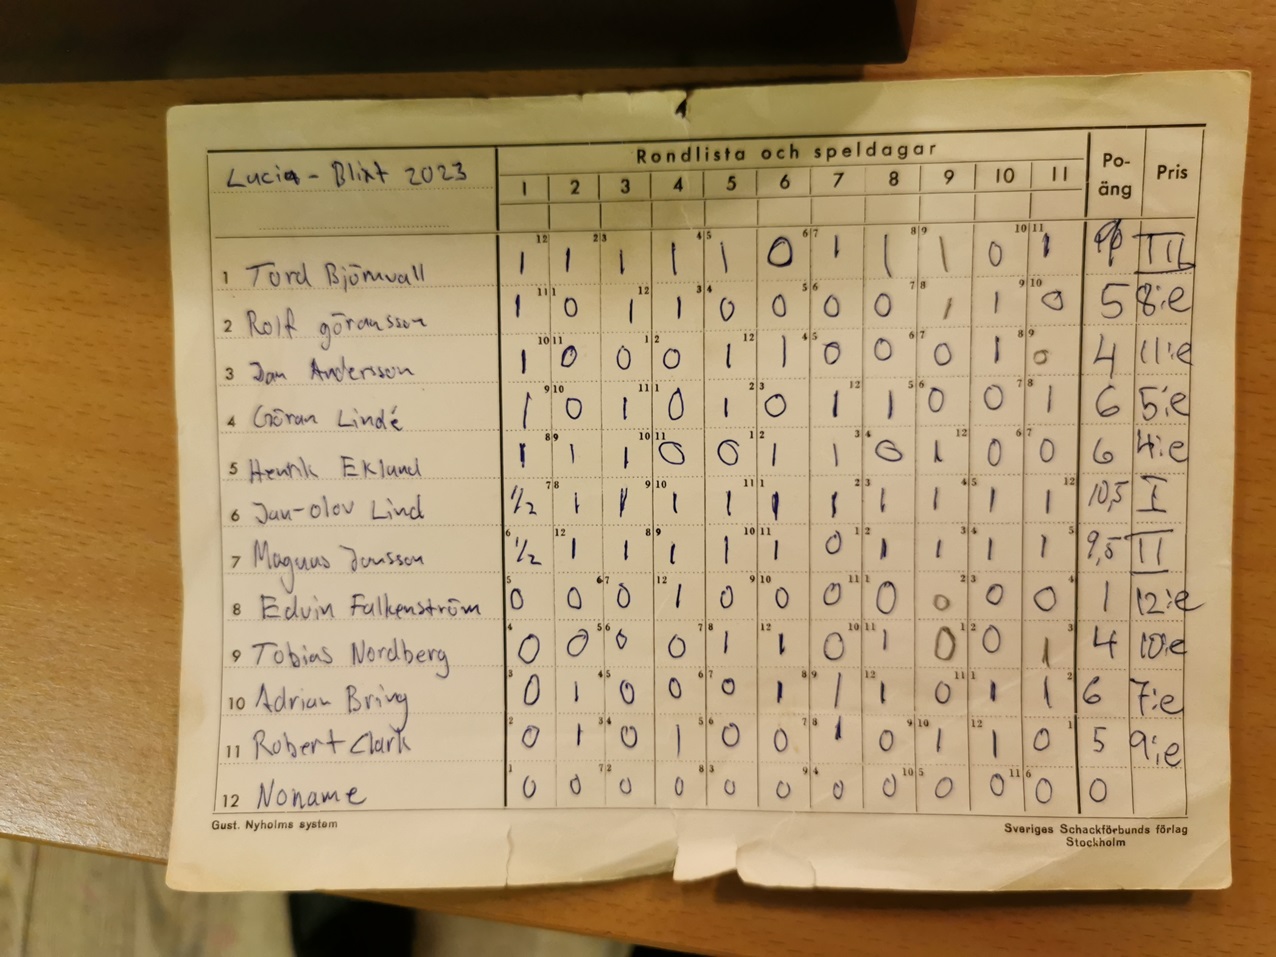 Lucia - Blixt 2023
Rondlista och speldagar
Po-
äng
Pris
1 2 3 4 5 6 7 8 9 10 11
12 2 3 4 5 6 7 8 9 10 11
1 Tord Björnvall 1 1 1 1 1 0 1 1 1 0 1 III
11 1 12 3 4 5 6 7 8 9 10
2 Rolf göransson 1 0 1 1 0 0 0 0 1 1 0 5 8:e
10 11 1 2 12 4 5 6 7 8 9
3 Jan Andersson 1 0 0 0 1 1 0 0 0 1 0 4 11:e
9 10 11 1 2 3 12 5 6 7 8
4 Göran Lindé 1 0 1 0 1 0 1 1 0 0 1 6 5:e
8 9 10 11 1 2 3 4 12 6 7
5 Henrik Eklund 1 1 1 0 0 1 1 0 1 0 0 6 4:e
7 8 9 10 11 1 2 3 4 5 12
6 Jan-olov Lind 1/2 1 1 1 1 1 1 1 1 1 1 10,5 I
6 12 8 9 10 11 1 2 3 4 5
7 Magnus Jonsson 1/2 1 1 1 1 1 0 1 1 1 1 9,5 II
5 6 7 12 9 10 11 1 2 3 4
8 Edvin Falkenström 0 0 0 1 0 0 0 0 0 0 0 1 12:e
4 5 6 7 8 12 10 11 1 2 3
9 Tobias Nordberg 0 0 0 0 1 1 0 1 0 0 1 4 10:e
3 4 5 6 7 8 9 12 11 1 2
10 Adrian Bring 0 1 0 0 0 1 1 1 0 1 1 6 7:e
2 3 4 5 6 7 8 9 10 12 1
11 Robert Clark 0 1 0 1 0 0 1 0 1 1 0 5 9:e
1 7 2 8 3 9 4 10 5 11 6
12 Noname 0 0 0 0 0 0 0 0 0 0 0 0
Gust. Nyholms system
Sveriges Schackförbunds förlag
Stockholm